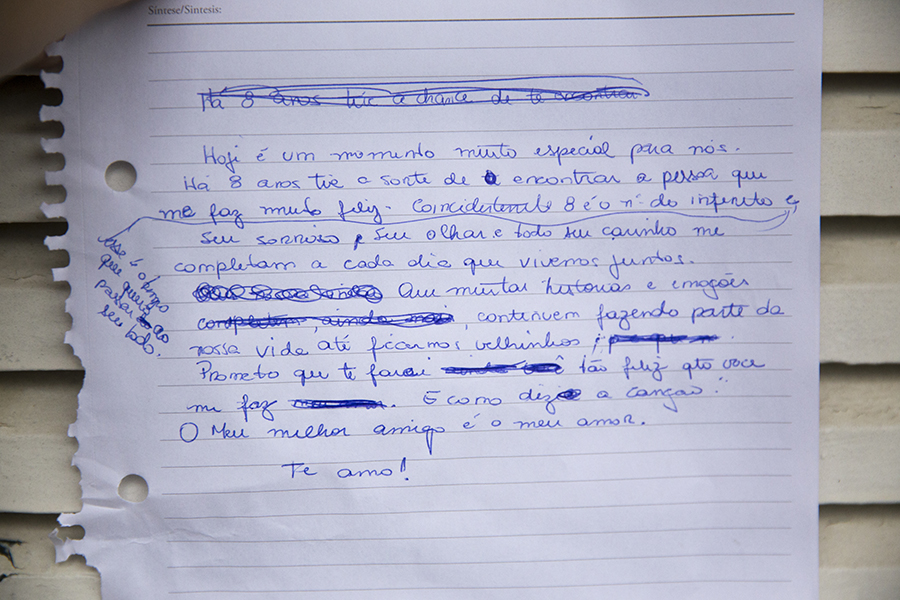 Síntese/Síntesis:
Há 8 anos tive a chance de te encontrar
Hoje é um momento muito especial para nós.
Há 8 anos tive a sorte de encontrar a pessoa que
me faz muito feliz. Coincidentemente 8 é o nº do infinito e
esse é o tempo
que quero
passar ao
seu lado.
Seu sorriso, seu olhar e todo seu carinho me
completam a cada dia que vivemos juntos.
Que muitas histórias e emoções
completam, ainda mais, continuem fazendo parte da
nossa vida até ficarmos velhinhos
Prometo que te farei tão feliz qto você
me faz. E como diz a canção:
O Meu melhor amigo é o meu amor.
Te amo!